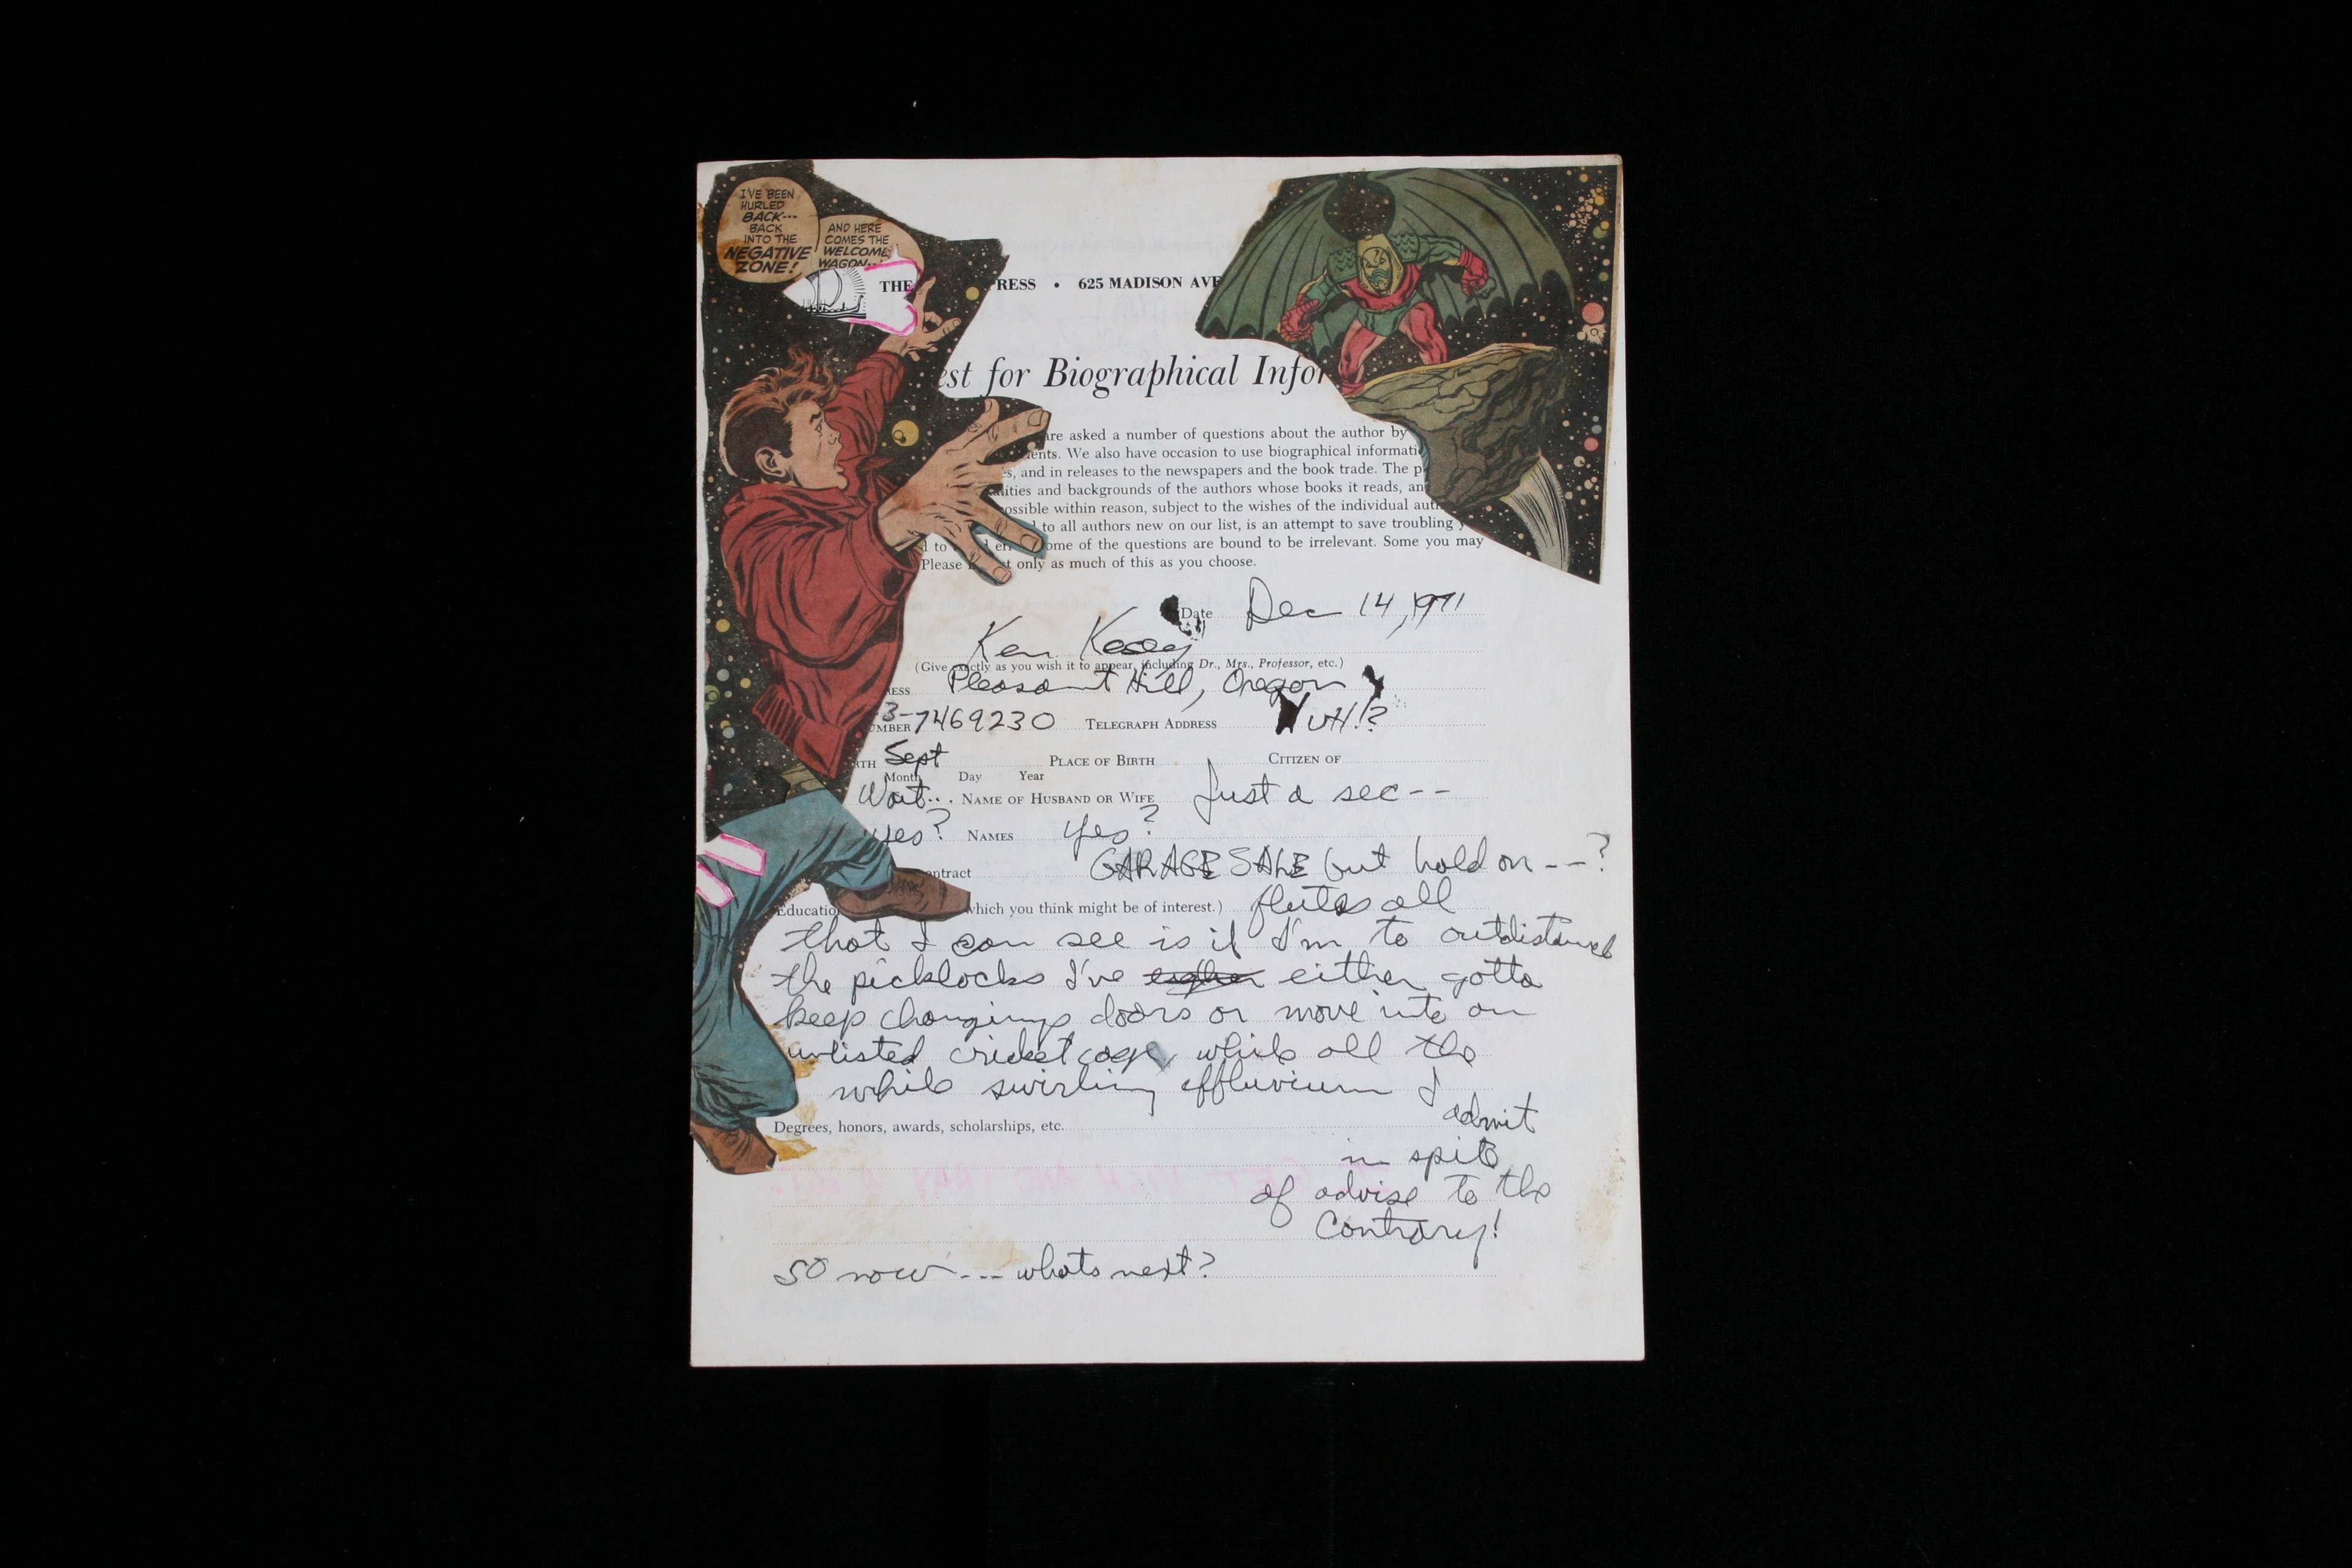 I'VE BEEN
HURLED
BACK---
BACK
INTO THE
NEGATIVE
ZONE!
AND HERE
COMES THE
WELCOME
WAGON--
THE RESS • 625 MADISON AVE
est for Biographical Infor
are asked a number of questions about the author by
ents. We also have occasion to use biographical informati
es, and in releases to the newspapers and the book trade. The p
alities and backgrounds of the authors whose books it reads, an
ossible within reason, subject to the wishes of the individual auth
l to all authors new on our list, is an attempt to save troubling y
l to err ome of the questions are bound to be irrelevant. Some you may
Please only as much of this as you choose.
Date Dec 14, 1971
Ken Kesey
(Give exactly as you wish it to appear, including Dr., Mrs., Professor, etc.)
ess Pleasant Hill, Oregon
3-7469230
umber Telegraph Address HUH!?
rth Sept Place of Birth Citizen of
Month Day Year
Wait... Name of Husband or Wife Just a sec--
yes? Names yes?
ontract GARAGE SALE but hold on--?
Educatio which you think might be of interest.) flutes all
that I can see is if I'm to outdistance
the picklocks I've either gotta
keep changing doors or move into an
unlisted cricket cage, while all the
while swirling effluvium I
admit
Degrees, honors, awards, scholarships, etc.
in spite
of advise to the
Contrary!
SO now --- whats next?